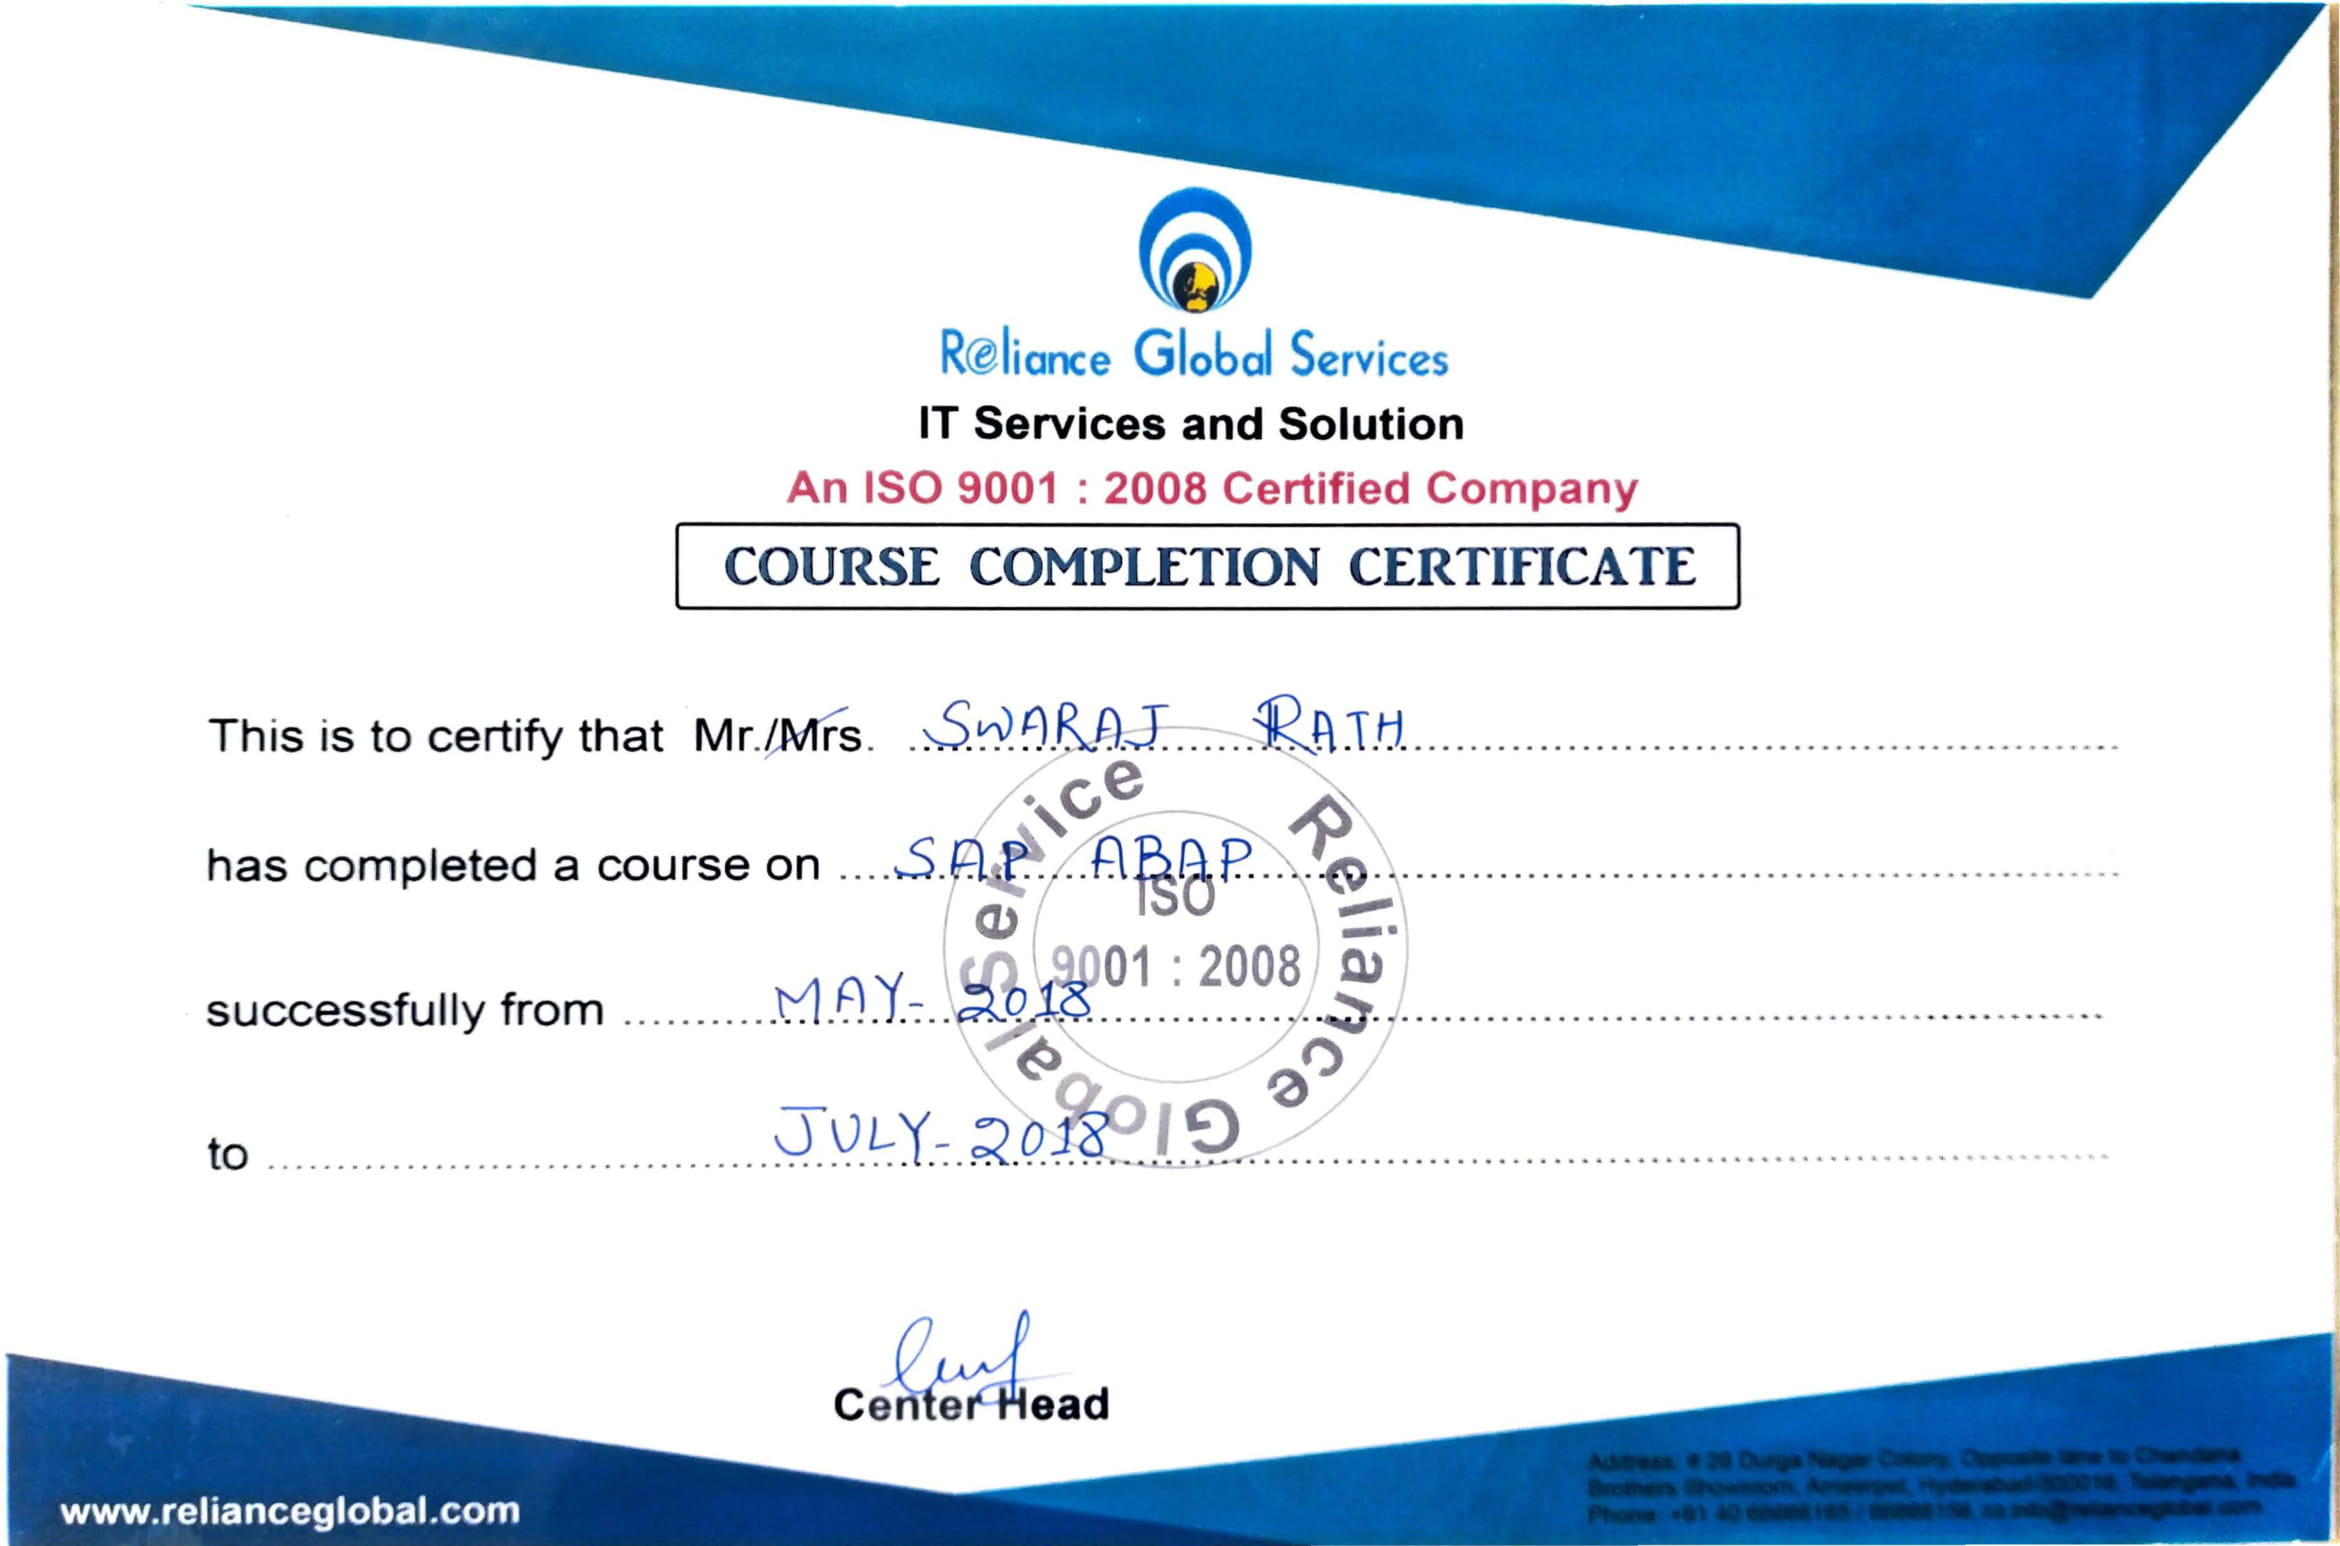 Reliance Global Services
IT Services and Solution
An ISO 9001 : 2008 Certified Company
COURSE COMPLETION CERTIFICATE
This is to certify that Mr./Mrs. SWARAJ RATH
has completed a course on SAP ABAP
successfully from MAY- 2018
to JULY- 2018
Reliance Global Service
ISO
9001 : 2008
Center Head
www.relianceglobal.com
Address: # 28 Durga Nagar Colony, Opposite lane to Chandana
Brothers Showroom, Ameerpet, Hyderabad-500016, Telangana, India
Phone: +91 40